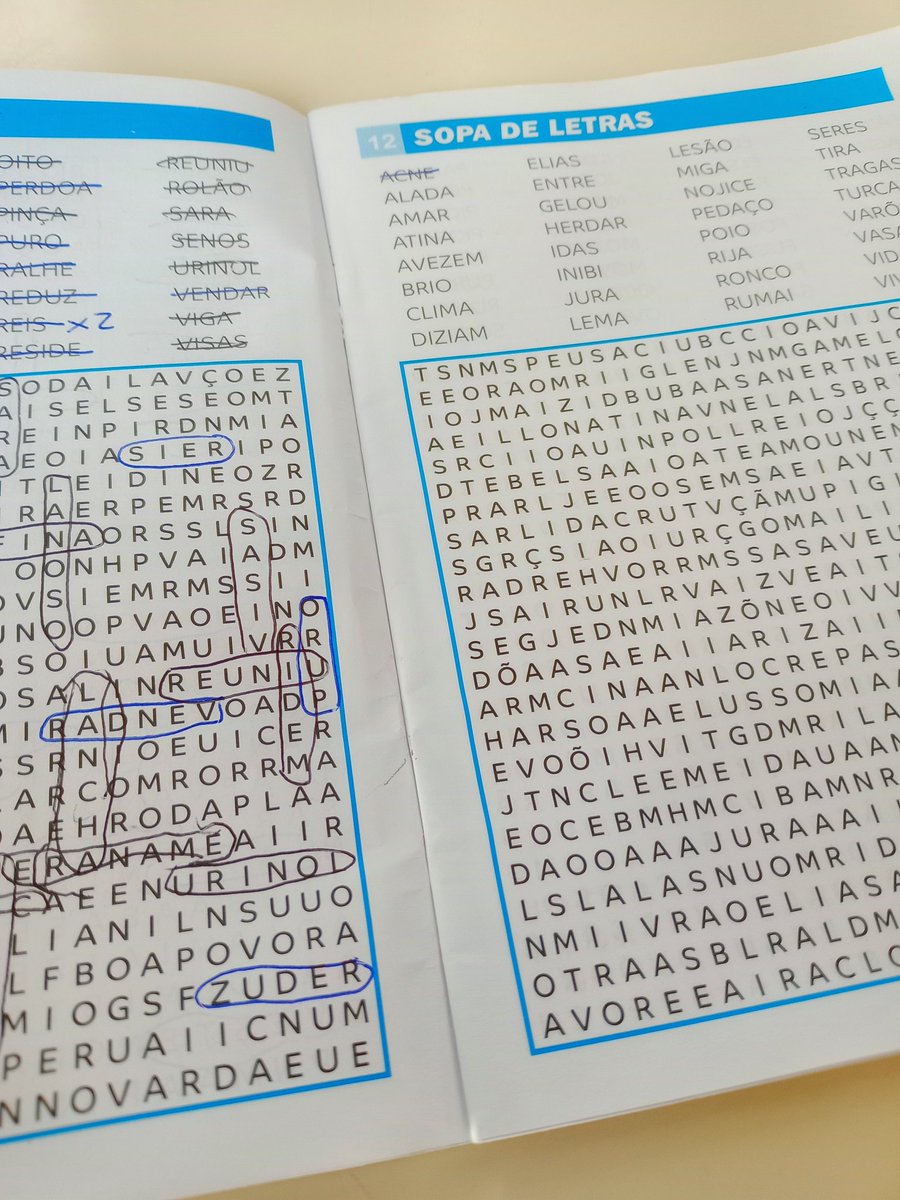 OITO REUNIU
PERDOA ROLÃO
PINÇA SARA
PURO SENOS
RALHE URINOL
REDUZ VENDAR
REIS x2 VIGA
RESIDE VISAS
SODAILAVÇOEZ
AISELSESEOMT
REINPIRDNMIA
AEOIASIERIPO
TLEIDINEOZR
RAERPEMRSRD
FINAORSSLSIN
OONHPVAIADM
OVSIEMRMSSII
UNOOPVAOEINO
BSOIUAMUIVRR
OSALINREUNIU
MIRADNEVOADP
SSRNIOEUICER
LARCOMRORRMA
OAEHRODAPLAA
ERANAMEAIIR
CAEENURINOI
LIANILNSUUO
LFBOAPOVORA
MIOGSFZUDER
PERUAIICNUM
NNOVARDAEUE
12 SOPA DE LETRAS
ACNE ELIAS LESÃO SERES
ALADA ENTRE MIGA TIRA
AMAR GELOU NOJICE TRAGAS
ATINA HERDAR PEDAÇO TURCA
AVEZEM IDAS POIO
BRIO INIBI RIJA
CLIMA JURA RONCO
DIZIAM LEMA RUMAI
TSNMSPEUSACIUBCCIOAVIJC
EEORAOMRIIGLENJNMGAMELO
IOJMAIZIDBUBAASANERTNE
AEILLONATINAVNELALSBR
SRCIIOAUINPOLLREIOJÇÇ
DTEBELSAAIOATEAMOUNEN
PRARLJEEOOSEMSAEIAVT
SARLIDACRUTVÇÃMUPIGI
SGRÇSIAOIURÇGOMAILI
RADREHVORRMSSASAVEU
JSAIRUNLRVAIZVEAITS
SEGJEDNMIAZÕNEOIVV
DÕAASAEAIIARIZAII
ARMCINAANLOCREPAS
HARSOAAELUSSOMIAA
EVOÕIHVITGDMRILA
JTNCLEEMEIDAUAAN
EOCEBMHMCIBAMNR
DAOOAAAJURAAAI
LSLALASNUOMRID
NMIIVRAOELIASA
OTRAASBLRALDM
AVOREEEAIRACLO